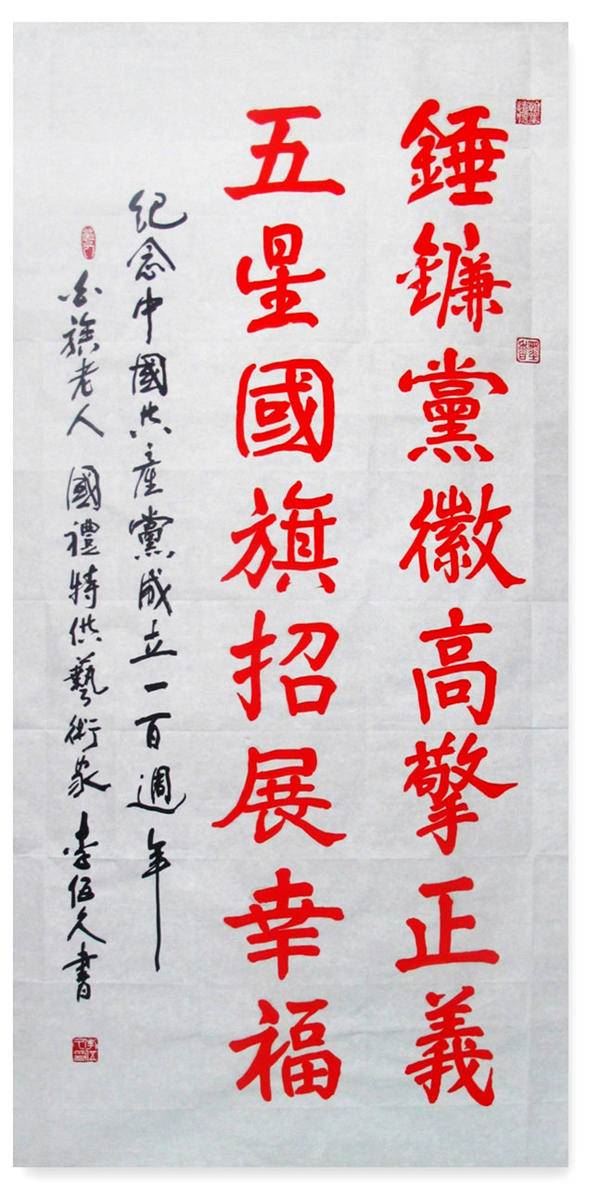 錘鐮黨徽高擎正義
五星國旗招展幸福
紀念中國共產黨成立一百週年
白族老人 國禮特供藝術家 李伍久書